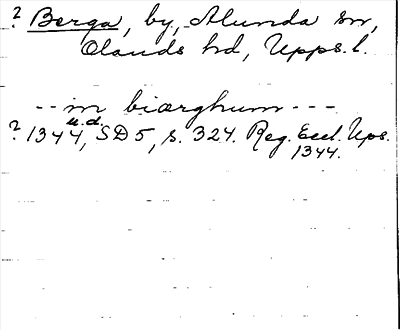 ? Berga, by, Alunda sn,
Olands hd, Upps. l.
-- in biærghum ---
u.d.
? 1344, SD 5, s. 324. Reg. Eccl. Ups.
1344.